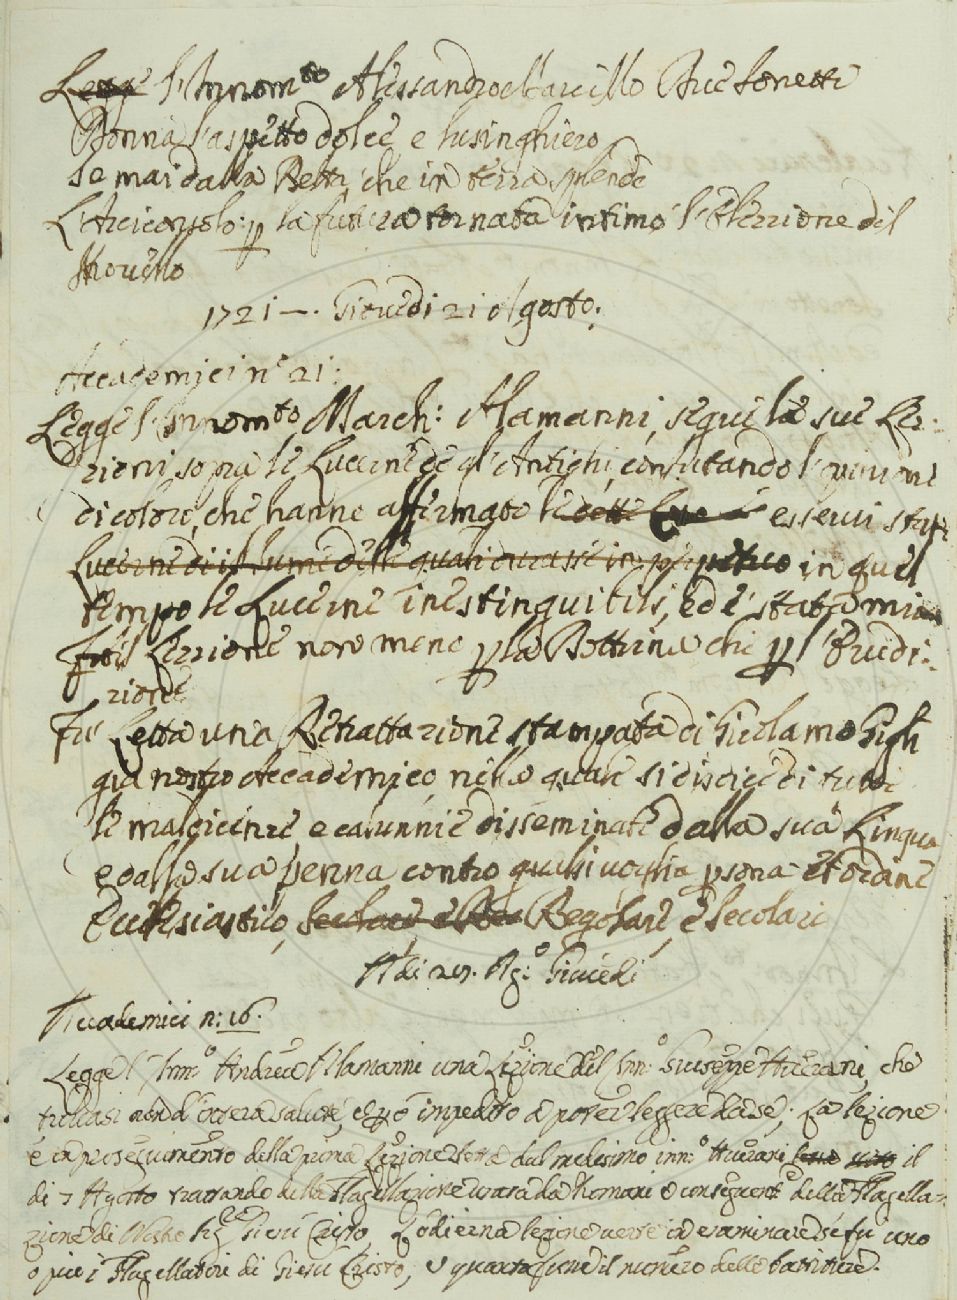 Legge l'Innom.to Alessandro Marcello Due sonetti
Donna l'aspetto dolce e lusinghiero
se mai dalla Beltà che in terra splende
L'Arciconsolo p la futura tornata intimò l'Elezzione del
Novello
1721 —. Giovedi 21 Agosto.
Accademici n° 21:
Legge l'Innom.to March: Alamanni, segue le sue Lez:
zioni sopra le Lucerne de gl'Antichi, confutando l'opinione
di coloro, che hanno affermato le dette esservi state
Lucerne di il lume delle quali durasse in ppetuo in quel
tempo le Lucerne inestinguibili, ed è stata
il Lezzione non meno p la Dottrina che p l'Erudi:
zione
Fu Letta una Retrattazione stampata di Girolamo Gigli
già nostro Accademico, nella quale si disdice di tutte
le maldicenze, e calunnie disseminate dalla sua Lingua
e dalla sua penna contro qualsivoglia psona et ordine
Ecclesiastico, Regolare, e Secolare
A di 28. Ag.° Giovedi
Accademici n: 16.
Legge l'Inn.° Andrea Alamanni una Lezione dell'Inn.° Giuseppe Averani, che
trovasi non d'intera salute, e p ciò impedito a poter leggere da se. La lezione
è in proseguimento della prima Lezione detta dal medesimo inn.° Averani il
di 7 Agosto trattando della Flagellazione usata da Romani e conseguent.e della Flagella=
zione di Nostro Sig.re Giesù Cristo, L'odierna lezione verte in esaminare se fu uno
o più i Flagellatori di Giesù Cristo, e quanto fosse il numero delle battiture.